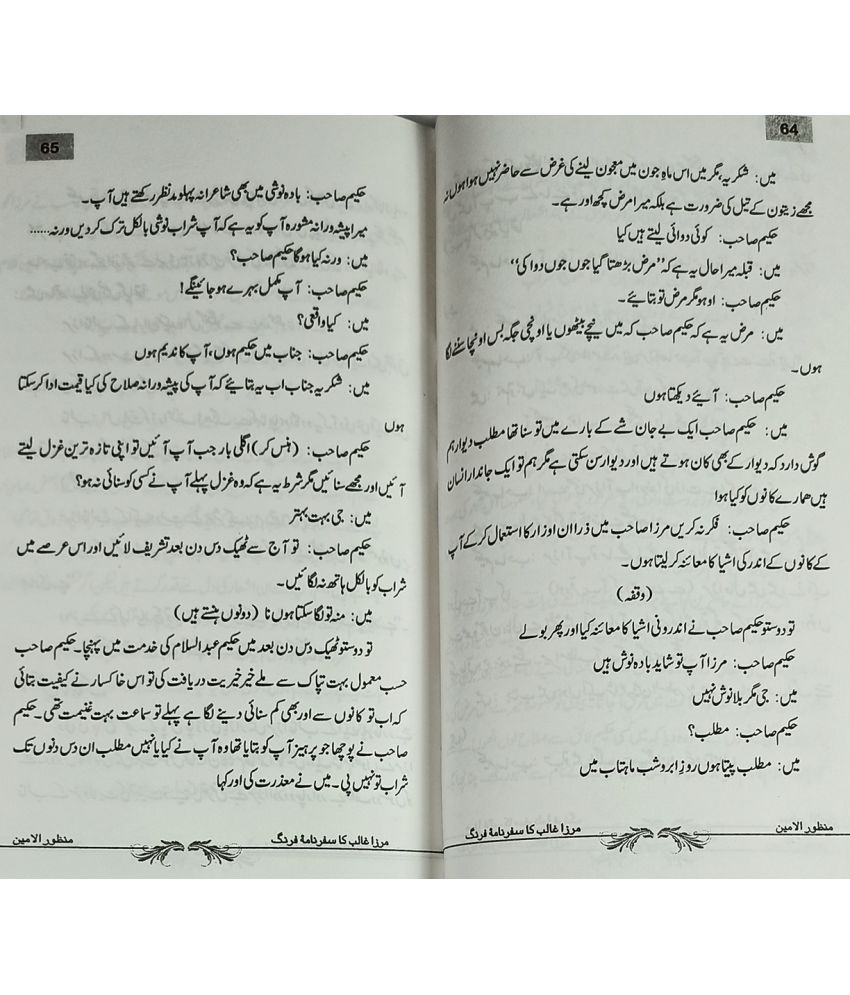 64
میں: شکریہ، مگر میں اس ماہِ جون میں معجون لینے کی غرض سے حاضر نہیں ہوا ہوں نہ
مجھے زیتون کے تیل کی ضرورت ہے بلکہ میرا مرض کچھ اور ہے۔
حکیم صاحب: کوئی دوائی لیتے ہیں کیا
میں: قبلہ میرا حال یہ ہے کہ ”مرض بڑھتا گیا جوں جوں دوا کی“
حکیم صاحب: اوہو مگر مرض تو بتائیے۔
میں: مرض یہ ہے کہ حکیم صاحب کہ میں نیچے بیٹھوں یا اونچی جگہ بس اونچا سننے لگا
ہوں۔
حکیم صاحب: آیئے دیکھتا ہوں
میں: حکیم صاحب ایک بے جان شے کے بارے میں تو سنا تھا مطلب دیوار ہم
گوش دارد کہ دیوار کے بھی کان ہوتے ہیں اور دیوار سن سکتی ہے مگر ہم تو ایک جاندار انسان
ہیں ہمارے کانوں کو کیا ہوا
حکیم صاحب: فکر نہ کریں مرزا صاحب میں ذرا ان اوزار کا استعمال کر کے آپ
کے کانوں کے اندر کی اشیا کا معائنہ کر لیتا ہوں۔
(وقفہ)
تو دوستو حکیم صاحب نے اندرونی اشیا کا معائنہ کیا اور پھر بولے
حکیم صاحب: مرزا آپ تو شاید بادہ نوش ہیں
میں: جی مگر بلا نوش نہیں
حکیم صاحب: مطلب؟
میں: مطلب پیتا ہوں روزِ ابر و شب ماہتاب میں
منظور الامین
مرزا غالب کا سفرنامۂ فرنگ
65
حکیم صاحب: بادہ نوشی میں بھی شاعرانہ پہلو مدنظر رکھتے ہیں آپ۔
میرا پیشہ ورانہ مشورہ آپ کو یہ ہے کہ آپ شراب نوشی بالکل ترک کر دیں ورنہ......
میں: ورنہ کیا ہوگا حکیم صاحب؟
حکیم صاحب: آپ مکمل بہرے ہو جائینگے!
میں: کیا واقعی؟
حکیم صاحب: جناب میں حکیم ہوں، آپ کا ندیم ہوں
میں: شکریہ جناب اب یہ بتائیے کہ آپ کی پیشہ ورانہ صلاح کی کیا قیمت ادا کر سکتا
ہوں
حکیم صاحب: (ہنس کر) اگلی بار جب آپ آئیں تو اپنی تازہ ترین غزل لیتے
آئیں اور مجھے سنائیں مگر شرط یہ ہے کہ وہ غزل پہلے آپ نے کسی کو سنائی نہ ہو؟
میں: جی بہت بہتر
حکیم صاحب: تو آج سے ٹھیک دس دن بعد تشریف لائیں اور اس عرصے میں
شراب کو بالکل ہاتھ نہ لگائیں۔
میں: منہ تو لگا سکتا ہوں نا (دونوں ہنستے ہیں)
تو دوستو ٹھیک دس دن بعد میں حکیم عبدالسلام کی خدمت میں پہنچا۔ حکیم صاحب
حسب معمول بہت تپاک سے ملے خیر خیریت دریافت کی تو اس خاکسار نے کیفیت بتائی
کہ اب تو کانوں سے اور بھی کم سنائی دینے لگا ہے پہلے تو سماعت بہت غنیمت تھی۔ حکیم
صاحب نے پوچھا جو پرہیز آپ کو بتایا تھا وہ آپ نے کیا یا نہیں مطلب ان دس دنوں تک
شراب تو نہیں پی۔ میں نے معذرت کی اور کہا
مرزا غالب کا سفرنامۂ فرنگ
منظور الامین